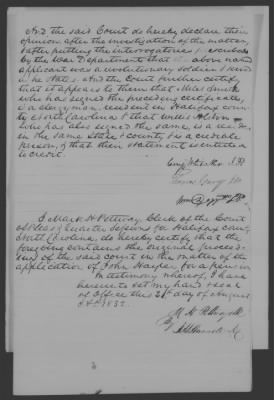 And the said Court do hereby declare their
opinion after the investigation of the matter,
& after putting the interrogatories prescribed
by the War Department that the above named
applicant was a revolutionary soldier & served
as he States. And the Court further certify
that it appears to them that Miles Smith
who has signed the preceding certificate,
is a clergyman resident in Halifax County
North Carolina & that Willis Alston
who has also signed the same, is a resident
in the same State & County & is a credible
person, & that their statement is entitled
to credit.
I Mark H Pettway Clerk of the Court
of Pleas & Quarter Sessions for Halifax County
North Carolina do hereby certify that the
foregoing contains the original proceed-
ings of the said court in the matter of the
application of John Harper for a pension
In testimony whereof, I have
hereunto set my hand & seal
of Office this 21st day of August
A.D. 1832.
M H Pettway